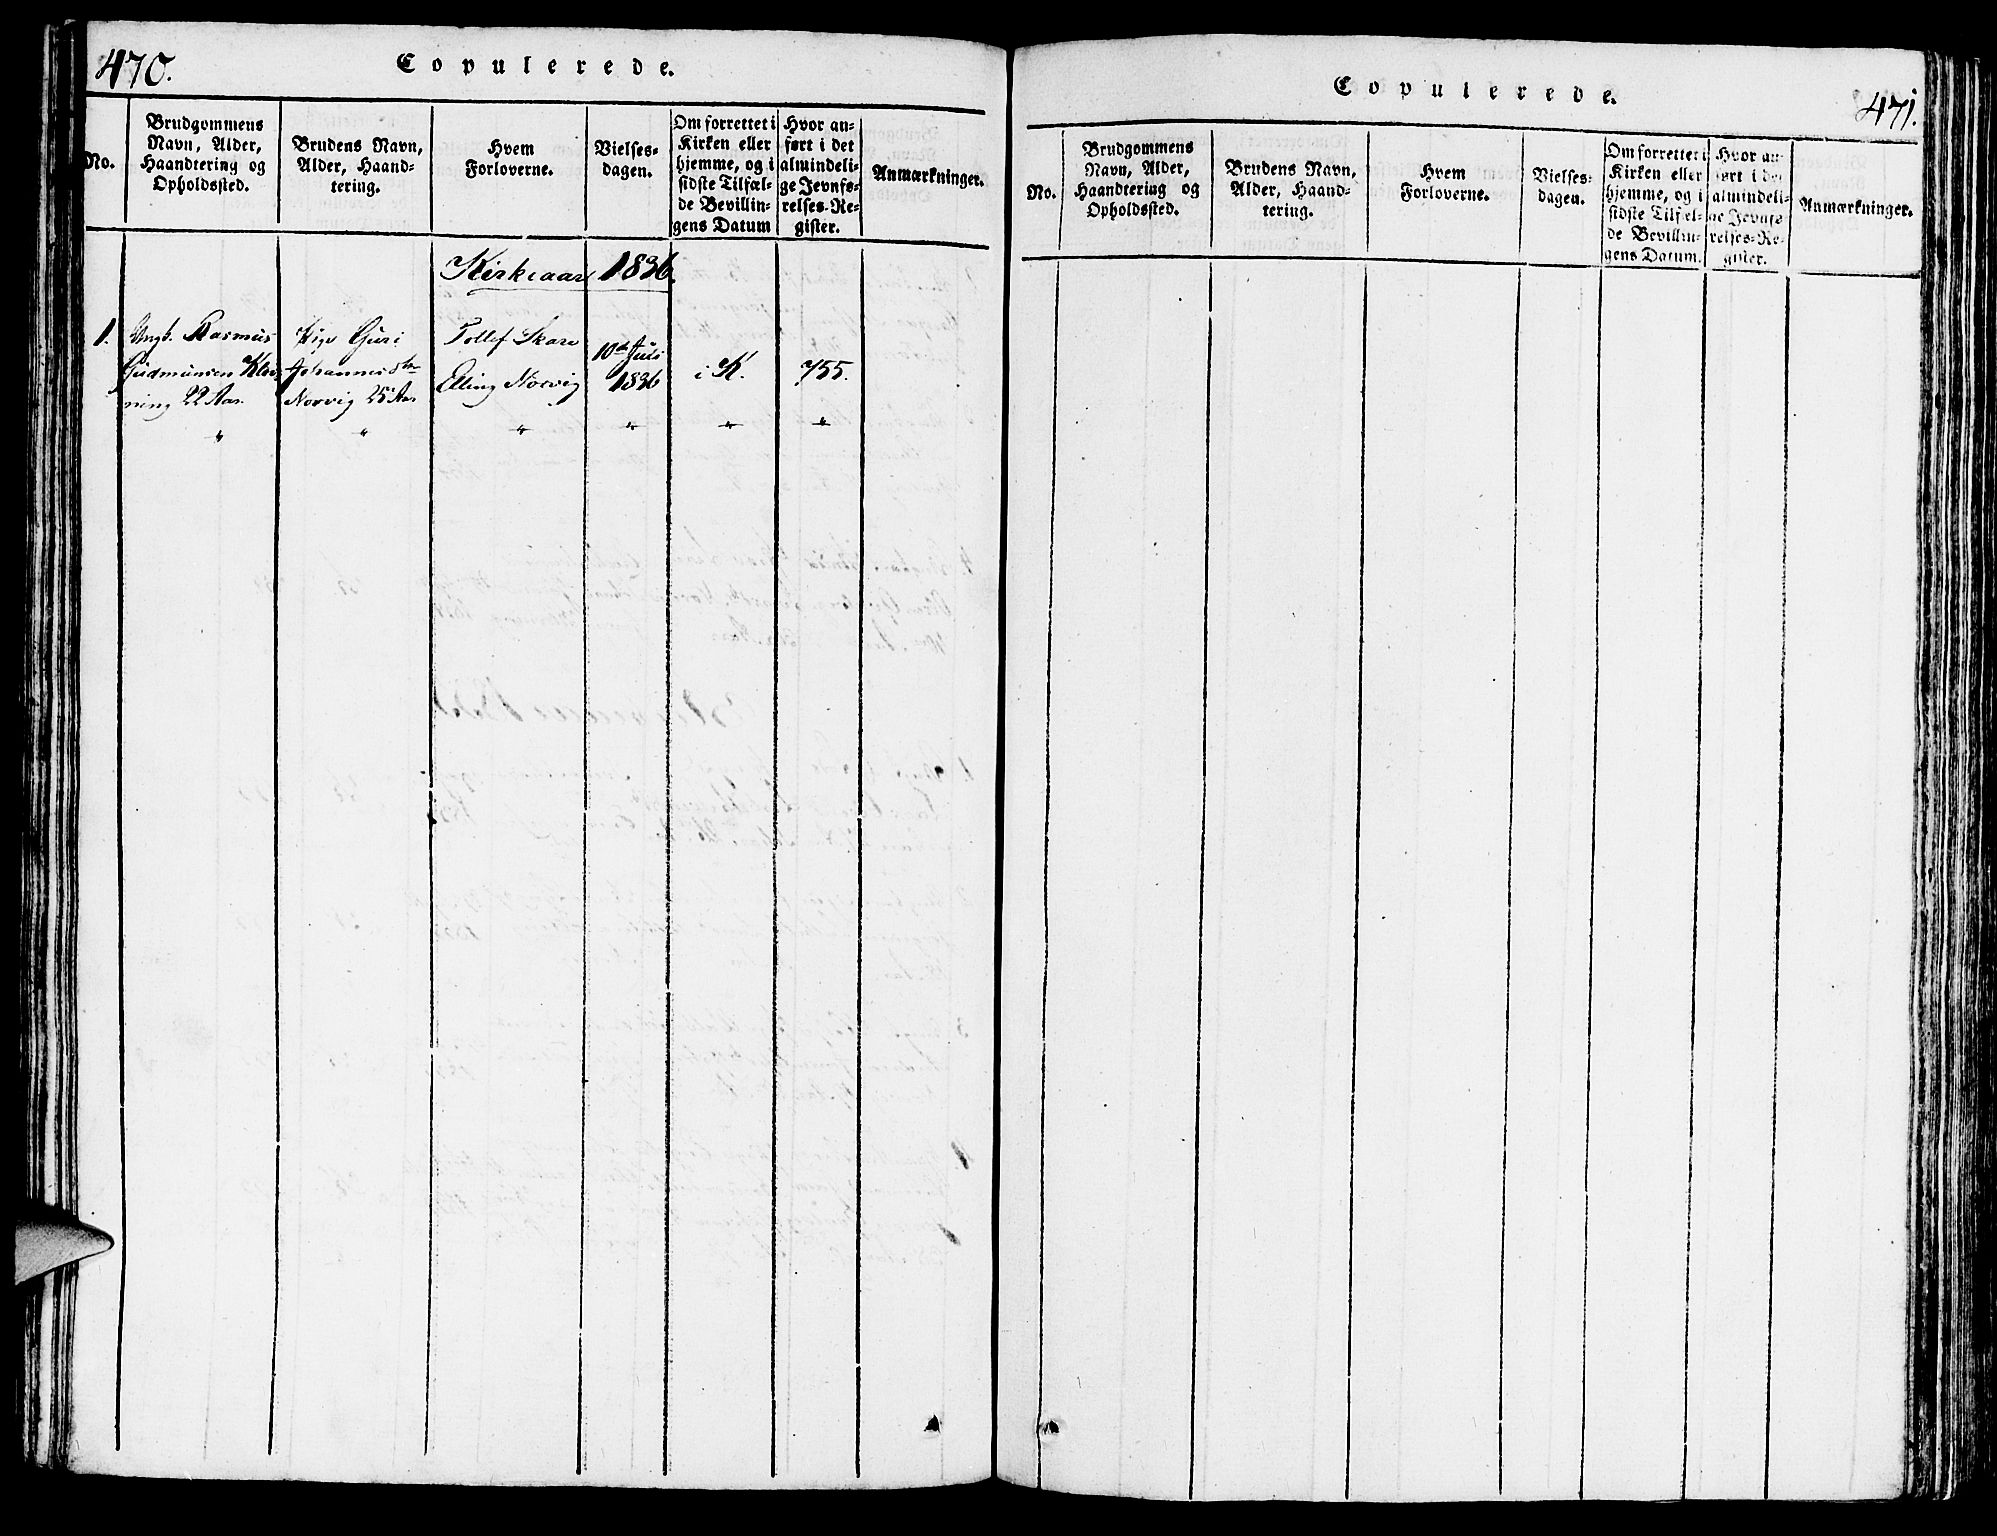 470.
Copulerede.
No.
Brudgommens
Navn, Alder,
Haandtering og
Opholdssted.
Brudens Navn,
Alder, Haand-
tering.
Hvem
Forloverne.
Vielses-
dagen.
Om forrettet i
Kirken eller
hjemme, og i
sidste Tilfæl-
de Bevillin-
gens Datum
Hvor an-
ført i det
almindeli-
ge Jevnfø-
relses-Re-
gister.
Anmærkninger.
Kirkeaar 1836.
1.
Ungk. Rasmus
Gudmunsen Klei-
ning 22 Aar.
Pige Guri
Johannesdtr
Norvig 25 Aar
Tollef Skare
Elling Norvig
10de Juli
1836
i K.
755.
" " " " " "
Copulerede.
471.
No.
Brudgommens
Navn, Alder,
Haandtering og
Opholdssted.
Brudens Navn,
Alder, Haand-
tering.
Hvem
Forloverne.
Vielses-
dagen.
Om forrettet i
Kirken eller
hjemme, og i
sidste Tilfæl-
de Bevillin-
gens Datum.
Hvor an-
ført i det
almindeli-
ge Jevnfø-
relses-Re-
gister.
Anmærkninger.